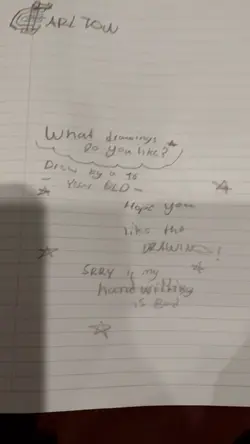 ARLTOW
What drawings
Do you like?
Draw by a 10
- YEAR OLD -
Hope you
like the
DRAWINGS!
SRRY if my
hand writting
is Bad